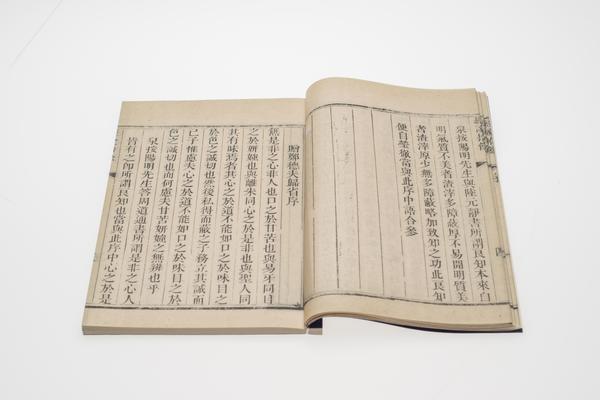 泉按陽明先生與陸元靜書所謂良知本來自
明氣質不美者渣滓多障蔽厚不易開明質美
者渣滓原少無多障蔽略加致知之功此良知
便自瑩徹當與此序中語合參
贈鄭德夫歸省序
無是非之心非人也口之於甘苦也與易牙同目
之於妍媸也與離朱同心之於是非也與聖人同
其有昧焉者其心之於道不能如口之於味目之
於色之誠切也然後私得而蔽之子務立其誠而
已子惟慮夫心之於道不能如口之於味目之於
色之誠切也而何慮夫甘苦妍媸之無辨也乎
泉按陽明先生答周道通書所謂是非之心人
皆有之即所謂良知也當與此序中心之於是